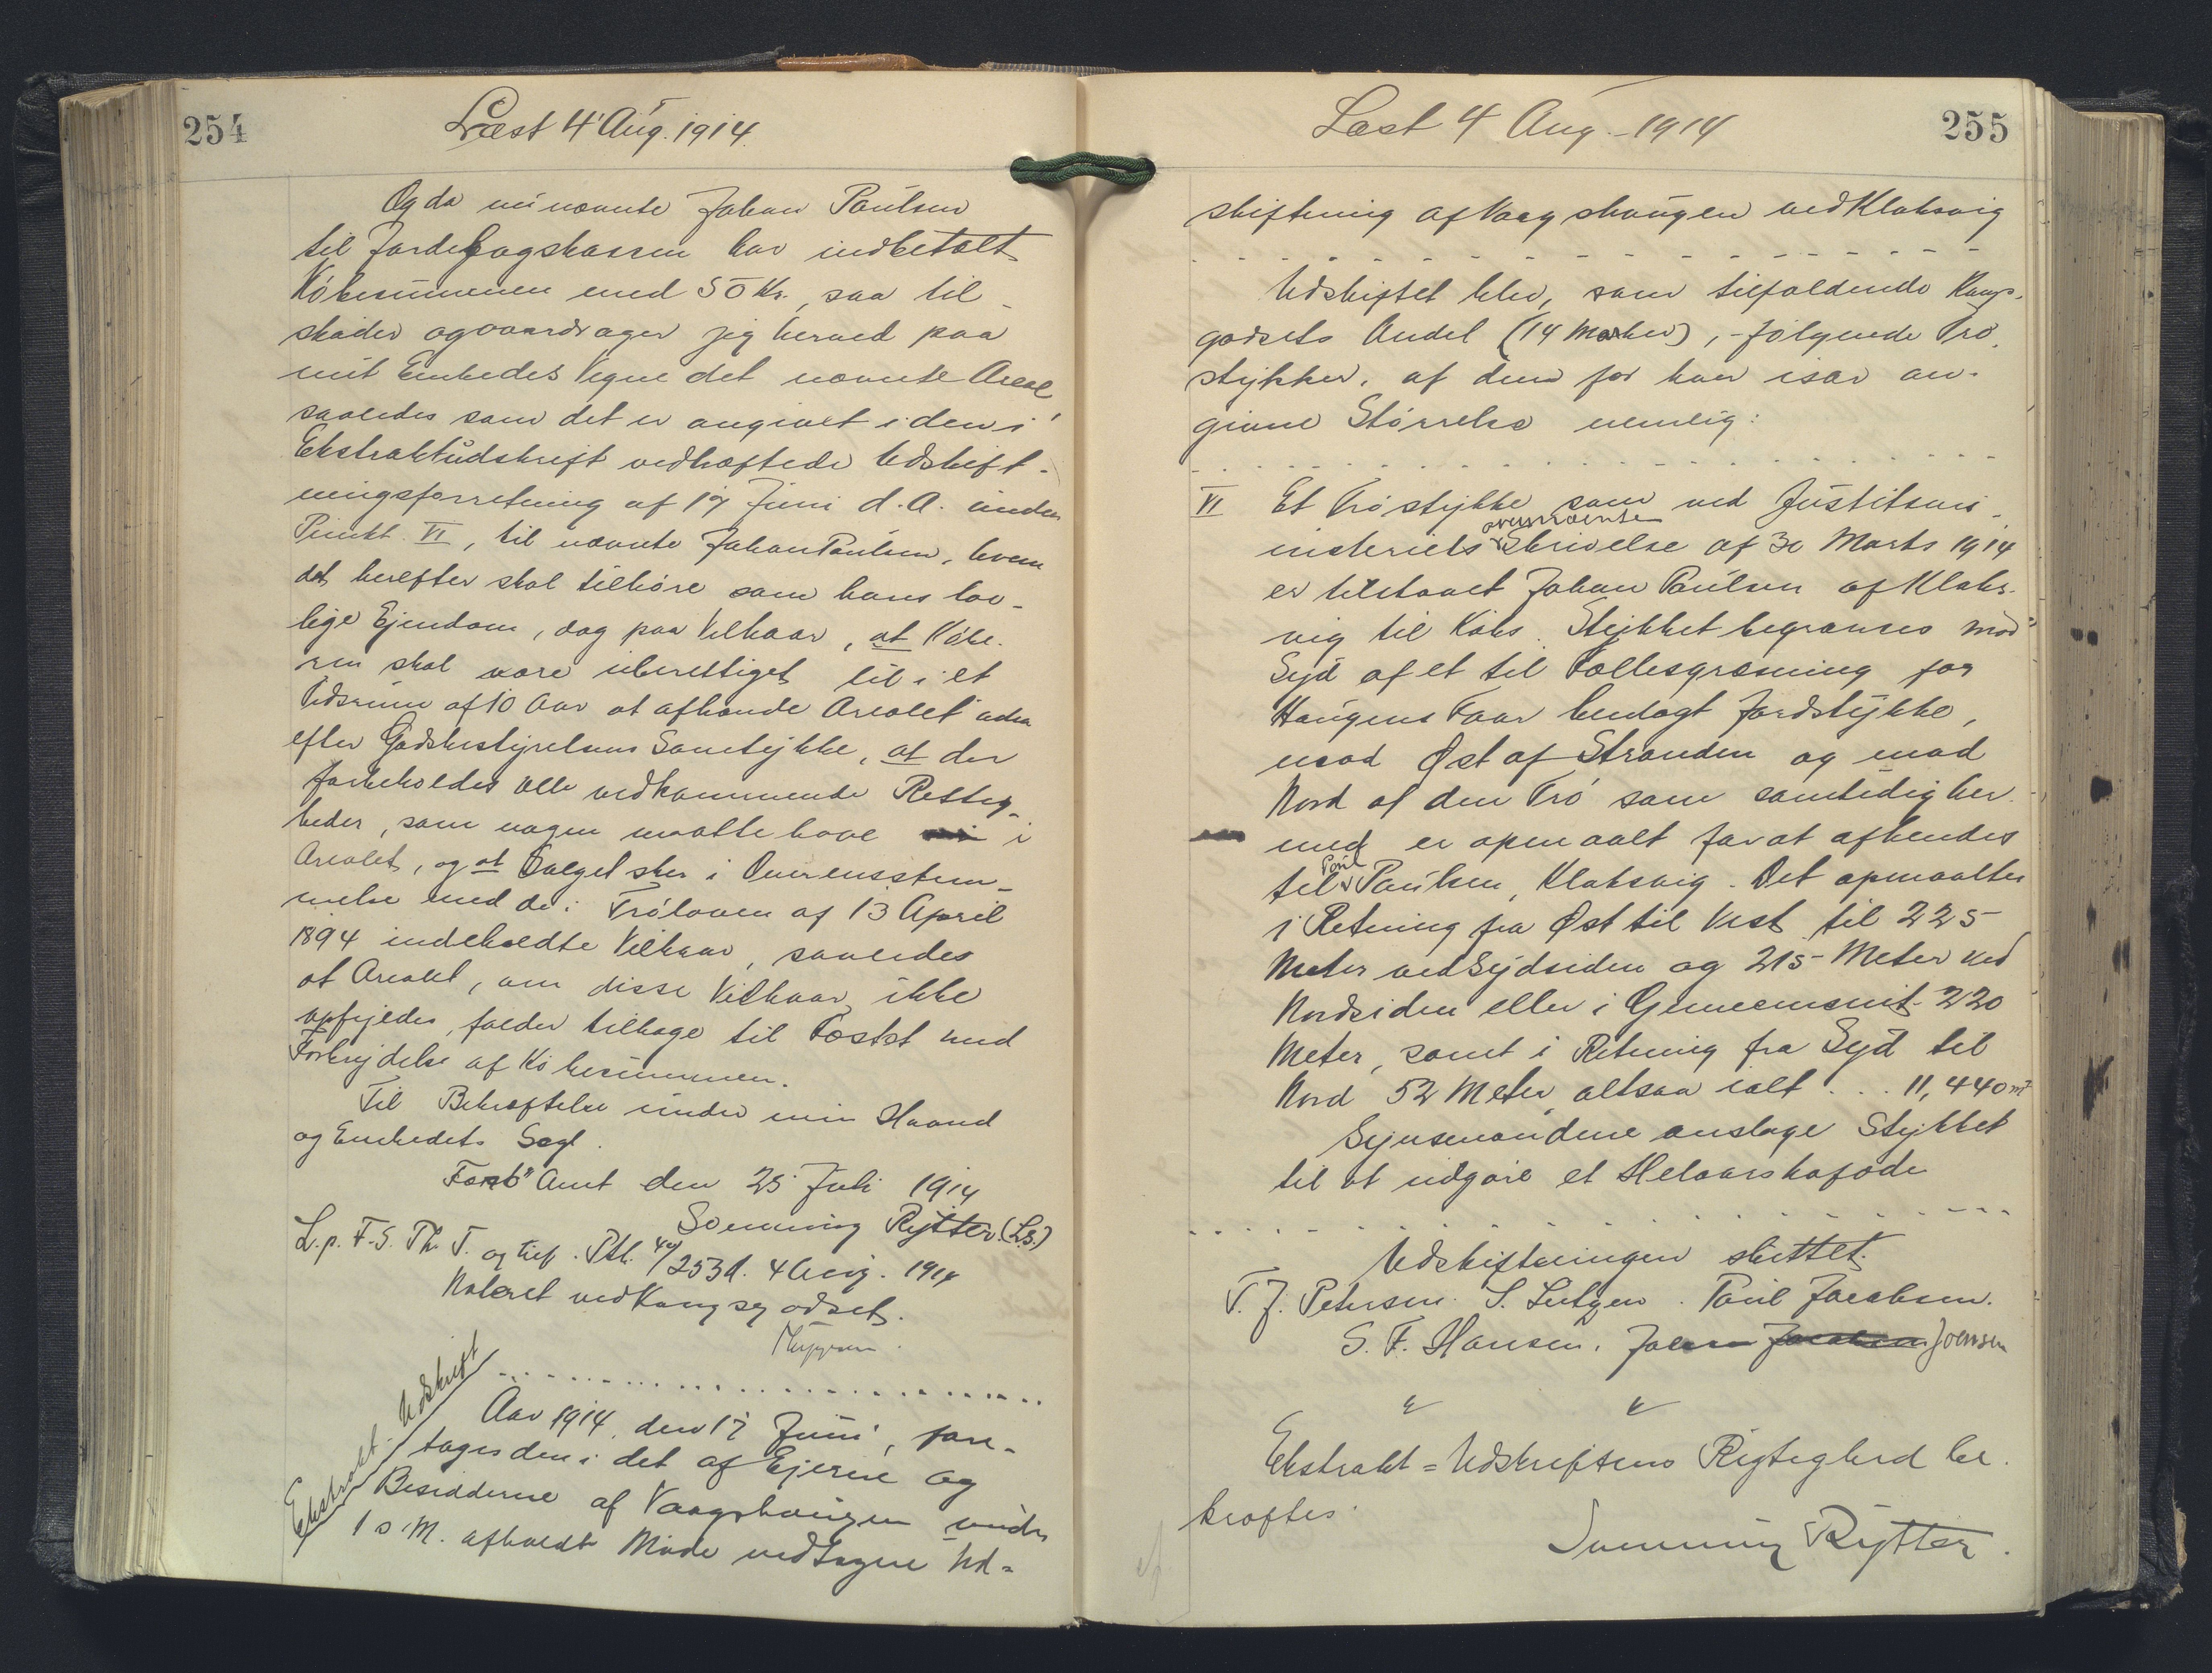 254
Læst 4' Aug. 1914.
Og da nu nævnte Johan Poulsen
til Jordebogskassen har indbetalt
Købesummen med 50 Kr., saa til
skøder og overdrager jeg herved paa
mit Embedes Vegne det nævnte Areal,
saaledes som det er angivet i den i
Ekstraktudskrift vedhæftede Udskift-
ningsforretning af 17 Juni d. A. under
Punkt VI, til nævnte Johan Poulsen, hvem
det herefter skal tilhøre som hans lov-
lige Ejendom, dog paa Vilkaar, at Købe-
ren skal være uberettiget til i et
Tidsrum af 10 Aar at afhænde Arealet uden
efter Godsbestyrelsens Samtykke, at der
forbeholdes alle vedkommende Rettig-
heder, som nogen maatte have i
Arealet, og at Salget sker i Overensstem-
melse med de i Trøloven af 13 April
1894 indeholdte Vilkaar, saaledes
at Arealet, om disse Vilkaar ikke
opfyldes, falder tilbage til Fæstet med
Fortrydelse af Købesummen.
Til Bekræftelse under min Haand
og Embedets Segl.
Færø Amt den 25 Juli 1914
Svenning Rytter (L.S.)
L.p. F.S. Th. T. og tilf. Ptk. 40/253 d. 4 Aug. 1914
Noteret ved Kongsgodset.
Ekstrakt-Udskrift
Aar 1914, den 17 Juni, fore-
toges den i det af Ejerne og
Besidderne af Vaagshaugen under
1 s. M. afholdt Møde vedtagne Ud-
255
Læst 4 Aug - 1914
skiftning af Vaagshaugen ved Klaksvig
Udskiftet blev, som tilfaldende Kongs-
godsets Andel (14 Marker), følgende Trø
stykker, af dem for hver især an-
givne Størrelse nemlig:
VI Et Trøstykke som ved Justitsmi-
ovennævnte
nisteriets Skrivelse af 30 Marts 1914
er tilstaaet Johan Poulsen af Klaks-
vig til Købs. Stykket begrænses mod
Syd af et til Fællesgræsning for
Haugens Faar henlagt Jordstykke,
mod Øst af Stranden og mod
Nord af den Trø som samtidig her-
med er opmaalt for at afhendes
Poul
til Poulsen, Klaksvig. Det opmaaltes
i Retning fra Øst til Vest til 225
Meter ved Sydsiden og 215 Meter ved
Nordsiden eller i Gennemsnit 220
Meter, samt i Retning fra Syd til
Nord 52 Meter, altsaa ialt . . . 11,440 m²
Synsmændene anslage Stykket
til at udgøre et Helaarskofode
Udskiftningen sluttet.
T. J. Petersen. S. Lützen. Poul Jacobsen.
S. F. Hansen. Johan Joensen
Ekstrakt=Udskriftens Rigtighed be-
kræftes.
Svenning Rytter.